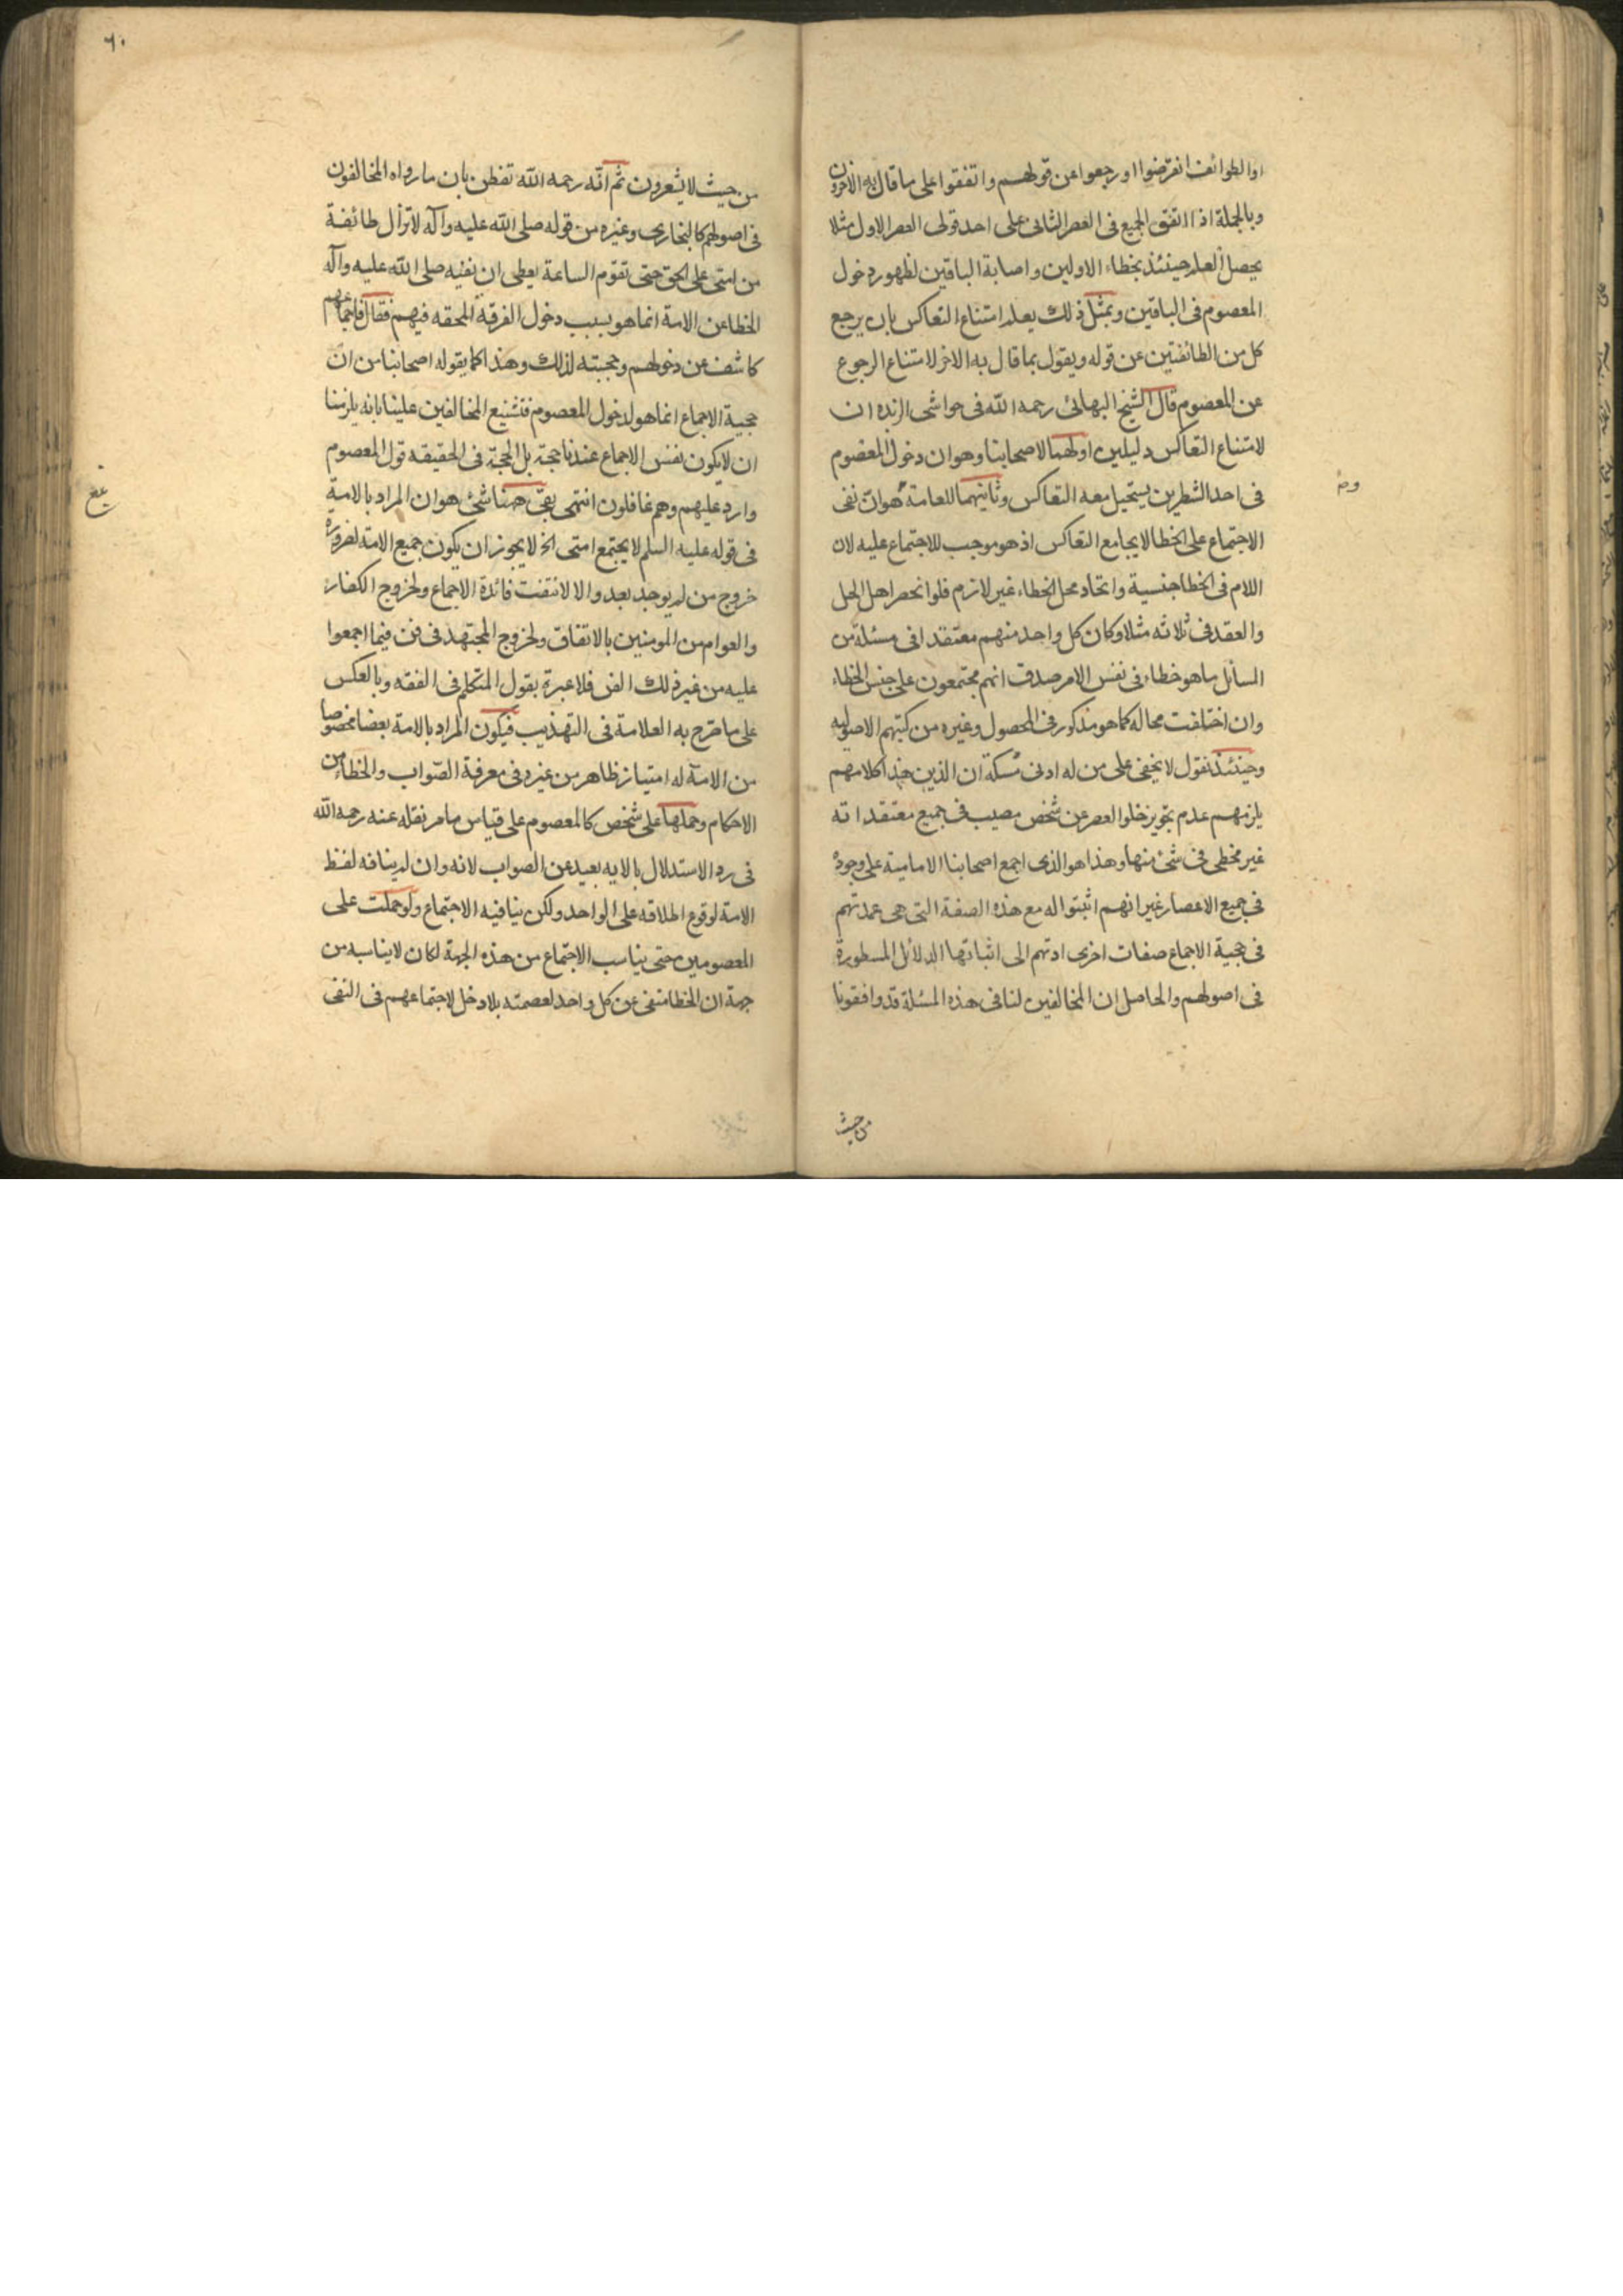 او الطوائف انقرضوا او رجعوا عن قولهم واتفقوا على ما قال به الاخرون
وبالجملة اذا اتفق الجميع فى العصر الثانى على احد قولى العصر الاول مثلا
يحصل العلم حينئذ بخطاء الاولين واصابة الباقين لظهور دخول
المعصوم فى الباقين وبمثل ذلك يعلم امتناع التعاكس بان يرجع
كل من الطائفتين عن قوله ويقول بما قال به الاخر لامتناع الرجوع
عن المعصوم قال الشيخ البهائى رحمه الله فى حواشى الزبدة ان
لامتناع التعاكس دليلين اولهما لاصحابنا وهو ان دخول المعصوم
فى احد الشطرين يستحيل معه التعاكس وثانيهما للعامة هو ان نفى
الاجتماع على الخطا لا يجامع التعاكس اذ هو موجب للاجتماع عليه لان
اللام فى الخطا جنسية واتحاد محل الخطاء غير لازم فلو انحصر اهل الحل
والعقد فى ثلاثه مثلا وكان كل واحد منهم معتقدا فى مسئلة من
المسائل ما هو خطاء فى نفس الامر صدق انهم مجتمعون على جنس الخطاء
وان اختلفت محاله كما هو مذكور فى المحصول وغيره من كتبهم الاصوليه
وحينئذ نقول لا يخفى على من له ادنى مسكة ان الذين هذا كلامهم
يلزمهم عدم تجويز خلو العصر عن شخص مصيب فى جميع معتقداته
غير مخطى فى شئ منها وهذا هو الذى اجمع اصحابنا الامامية على وجوده
فى جميع الاعصار غير انهم اثبتوا له مع هذه الصفة التى هى عمدتهم
فى حجية الاجماع صفات اخرى ادتهم الى اثباتها الدلائل المسطورة
فى اصولهم والحاصل ان المخالفين لنا فى هذه المسئلة قد وافقونا
من حيث
٦٠
من حيث لا يشعرون ثم انه رحمه الله تفطن بان ما رواه المخالفون
فى اصولهم كالبخارى وغيره من قوله صلى الله عليه وآله لا تزال طائفة
من امتى على الحق حتى تقوم الساعة يعطى ان نفيه صلى الله عليه وآله
الخطا عن الامة انما هو بسبب دخول الفرقة المحقه فيهم فقال فاجماعهم
كاشف عن دخولهم وحجيته لذلك وهذا كما يقوله اصحابنا من ان
حجية الاجماع انما هو لدخول المعصوم فتشنيع المخالفين علينا بانه يلزمنا
ان لا يكون نفس الاجماع عندنا حجة بل الحجة فى الحقيقه قول المعصوم
وارد عليهم وهم غافلون انتهى بقى ههنا شئ هو ان المراد بالامة
فى قوله عليه السلم لا يجتمع امتى الخ لا يجوز ان يكون جميع الامة لضرورة
خروج من لم يوجد بعد والا لانتفت فائدة الاجماع ولخروج الكفار
والعوام من المومنين بالاتفاق ولخروج المجتهد فى فن فيما اجمعوا
عليه من غير ذلك الفن فلا عبرة بقول المتكلم فى الفقه وبالعكس
على ما صرح به العلامة فى التهذيب فيكون المراد بالامة بعضا مخصوصا
من الامة له امتياز ظاهر من غيره فى معرفة الصواب والخطاء من
الاحكام وحملها على شخص كالمعصوم على قياس ما مر نقله عنه رحمه الله
فى رد الاستدلال بالايه بعيد عن الصواب لانه وان لم ينافه لفظ
الامة لوقوع اطلاقه على الواحد ولكن ينافيه الاجتماع ولو حملت على
المعصومين حتى يناسب الاجتماع من هذه الجهة لكان لا يناسبه من
جهة ان الخطا منفى عن كل واحد لعصمته بلا دخل لاجتماعهم فى النفى